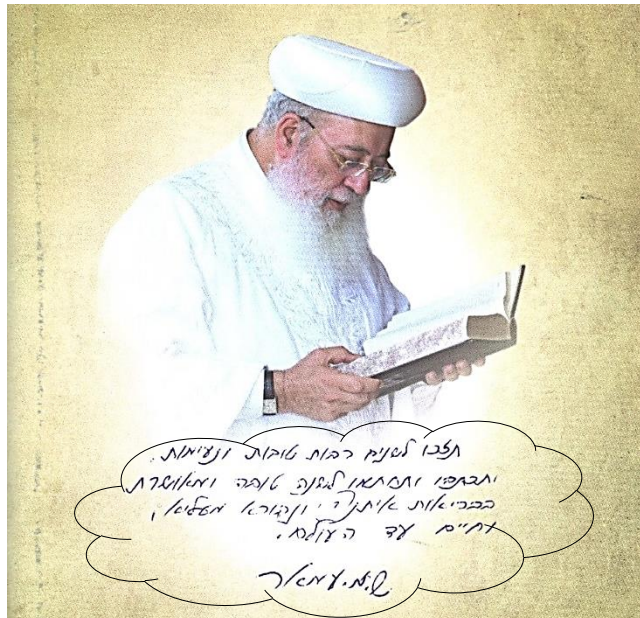 תזכו לשנים רבות טובות ונעימות.
ותכתבו ותחתמו לשנה טובה ומאושרת
בבריאות איתנה, ונהורא מעליא,
וחיים עד העולם.
ש.מ. עמאר